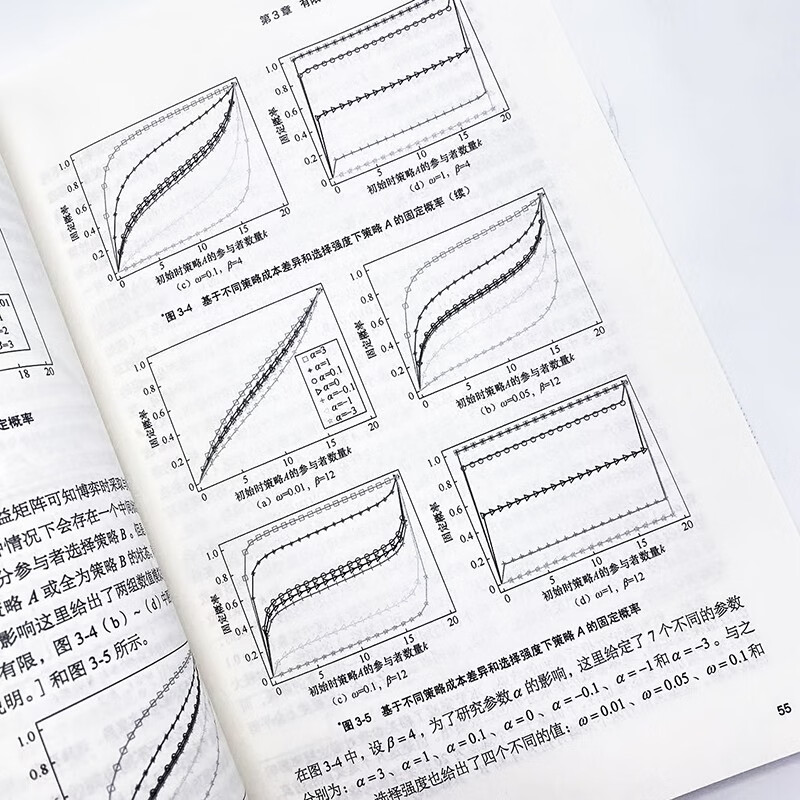 第3章 有限
固定概率
1.0
0.8
0.6
0.4
0.2
0
5
10
15
20
初始时策略A的参与者数量k
（c）ω=0.1，β=4
固定概率
1.0
0.8
0.6
0.4
0.2
0
5
10
15
20
初始时策略A的参与者数量k
（d）ω=1，β=4
*图3-4 基于不同策略成本差异和选择强度下策略 A 的固定概率（续）
固定概率
1.0
0.8
0.6
0.4
0.2
0
5
10
15
20
α=3
α=1
α=0.1
α=0
α=-0.1
α=-1
α=-3
初始时策略A的参与者数量k
（a）ω=0.01，β=12
固定概率
1.0
0.8
0.6
0.4
0.2
0
5
10
15
20
初始时策略A的参与者数量k
（b）ω=0.05，β=12
固定概率
1.0
0.8
0.6
0.4
0.2
0
5
10
15
20
初始时策略A的参与者数量k
（c）ω=0.1，β=12
固定概率
1.0
0.8
0.6
0.4
0.2
0
5
10
15
20
初始时策略A的参与者数量k
（d）ω=1，β=12
*图3-5 基于不同策略成本差异和选择强度下策略 A 的固定概率
在图3-4中，设β=4，为了研究参数α的影响，这里给定了7个不同的参数
分别为：α=3、α=1、α=0.1、α=0、α=-0.1、α=-1和α=-3。与之
选择强度也给出了四个不同的值：ω=0.01、ω=0.05、ω=0.1和
55
18 20
定概率
益矩阵可知博弈时采取
情况下会存在一个中间
分参与者选择策略B。
略A或全为策略B的状态
影响这里给出了两组数值
有限，图3-4（b）~（d）
说明。］和图3-5所示。
1.0
0.8